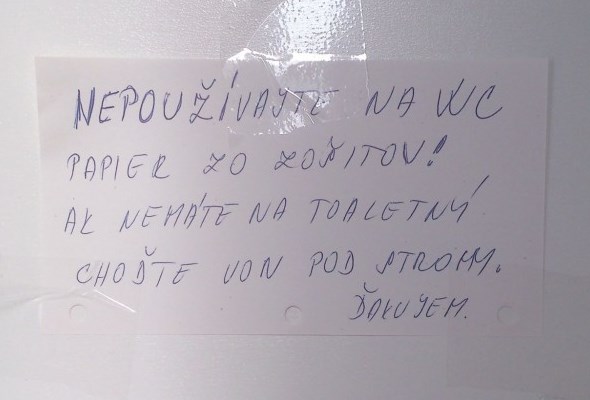 NEPOUŽÍVAJTE NA WC
PAPIER ZO ZOŠITOV!
AK NEMÁTE NA TOALETNÝ
CHOĎTE VON POD STROMY.
ĎAKUJEM.